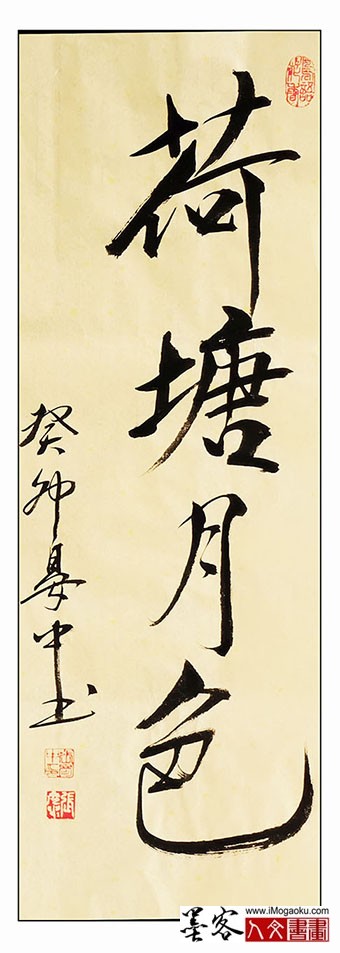 荷塘月色
癸卯晏中书
墨客
www.iMogaoku.com
人文書畫